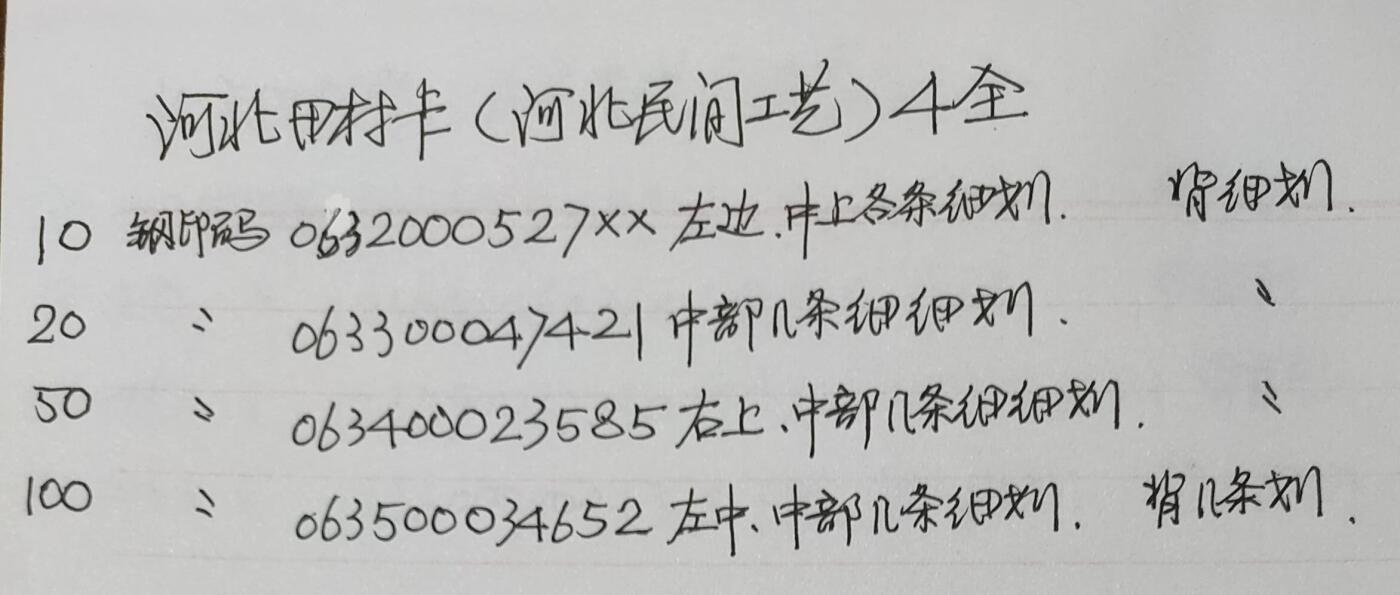 河北田村卡（河北民间工艺）4全
10 钢印码 0632000527XX 左边、中上各条细划. 背细划.
20 〃 063300047421 中部几条细细划. 〃
50 〃 063400023585 右上、中部几条细细划. 〃
100 〃 063500034652 左中、中部几条细划. 背几条划.